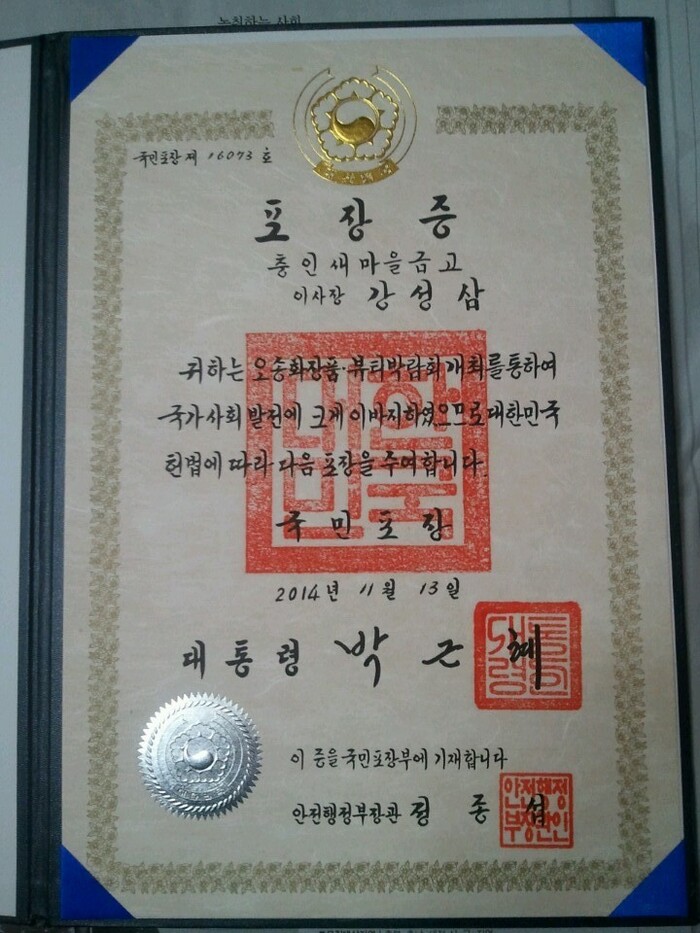 국민포장 제 16073 호
포장증
충인새마을금고
이사장 강성삼
귀하는 오송화장품·뷰티박람회개최를통하여
국가사회 발전에 크게 이바지하였으므로 대한민국
헌법에 따라 다음 포장을 수여합니다.
국민포장
2014년 11월 13일
대통령 박근혜
이 증을 국민포장부에 기재합니다
안전행정부장관 정종섭